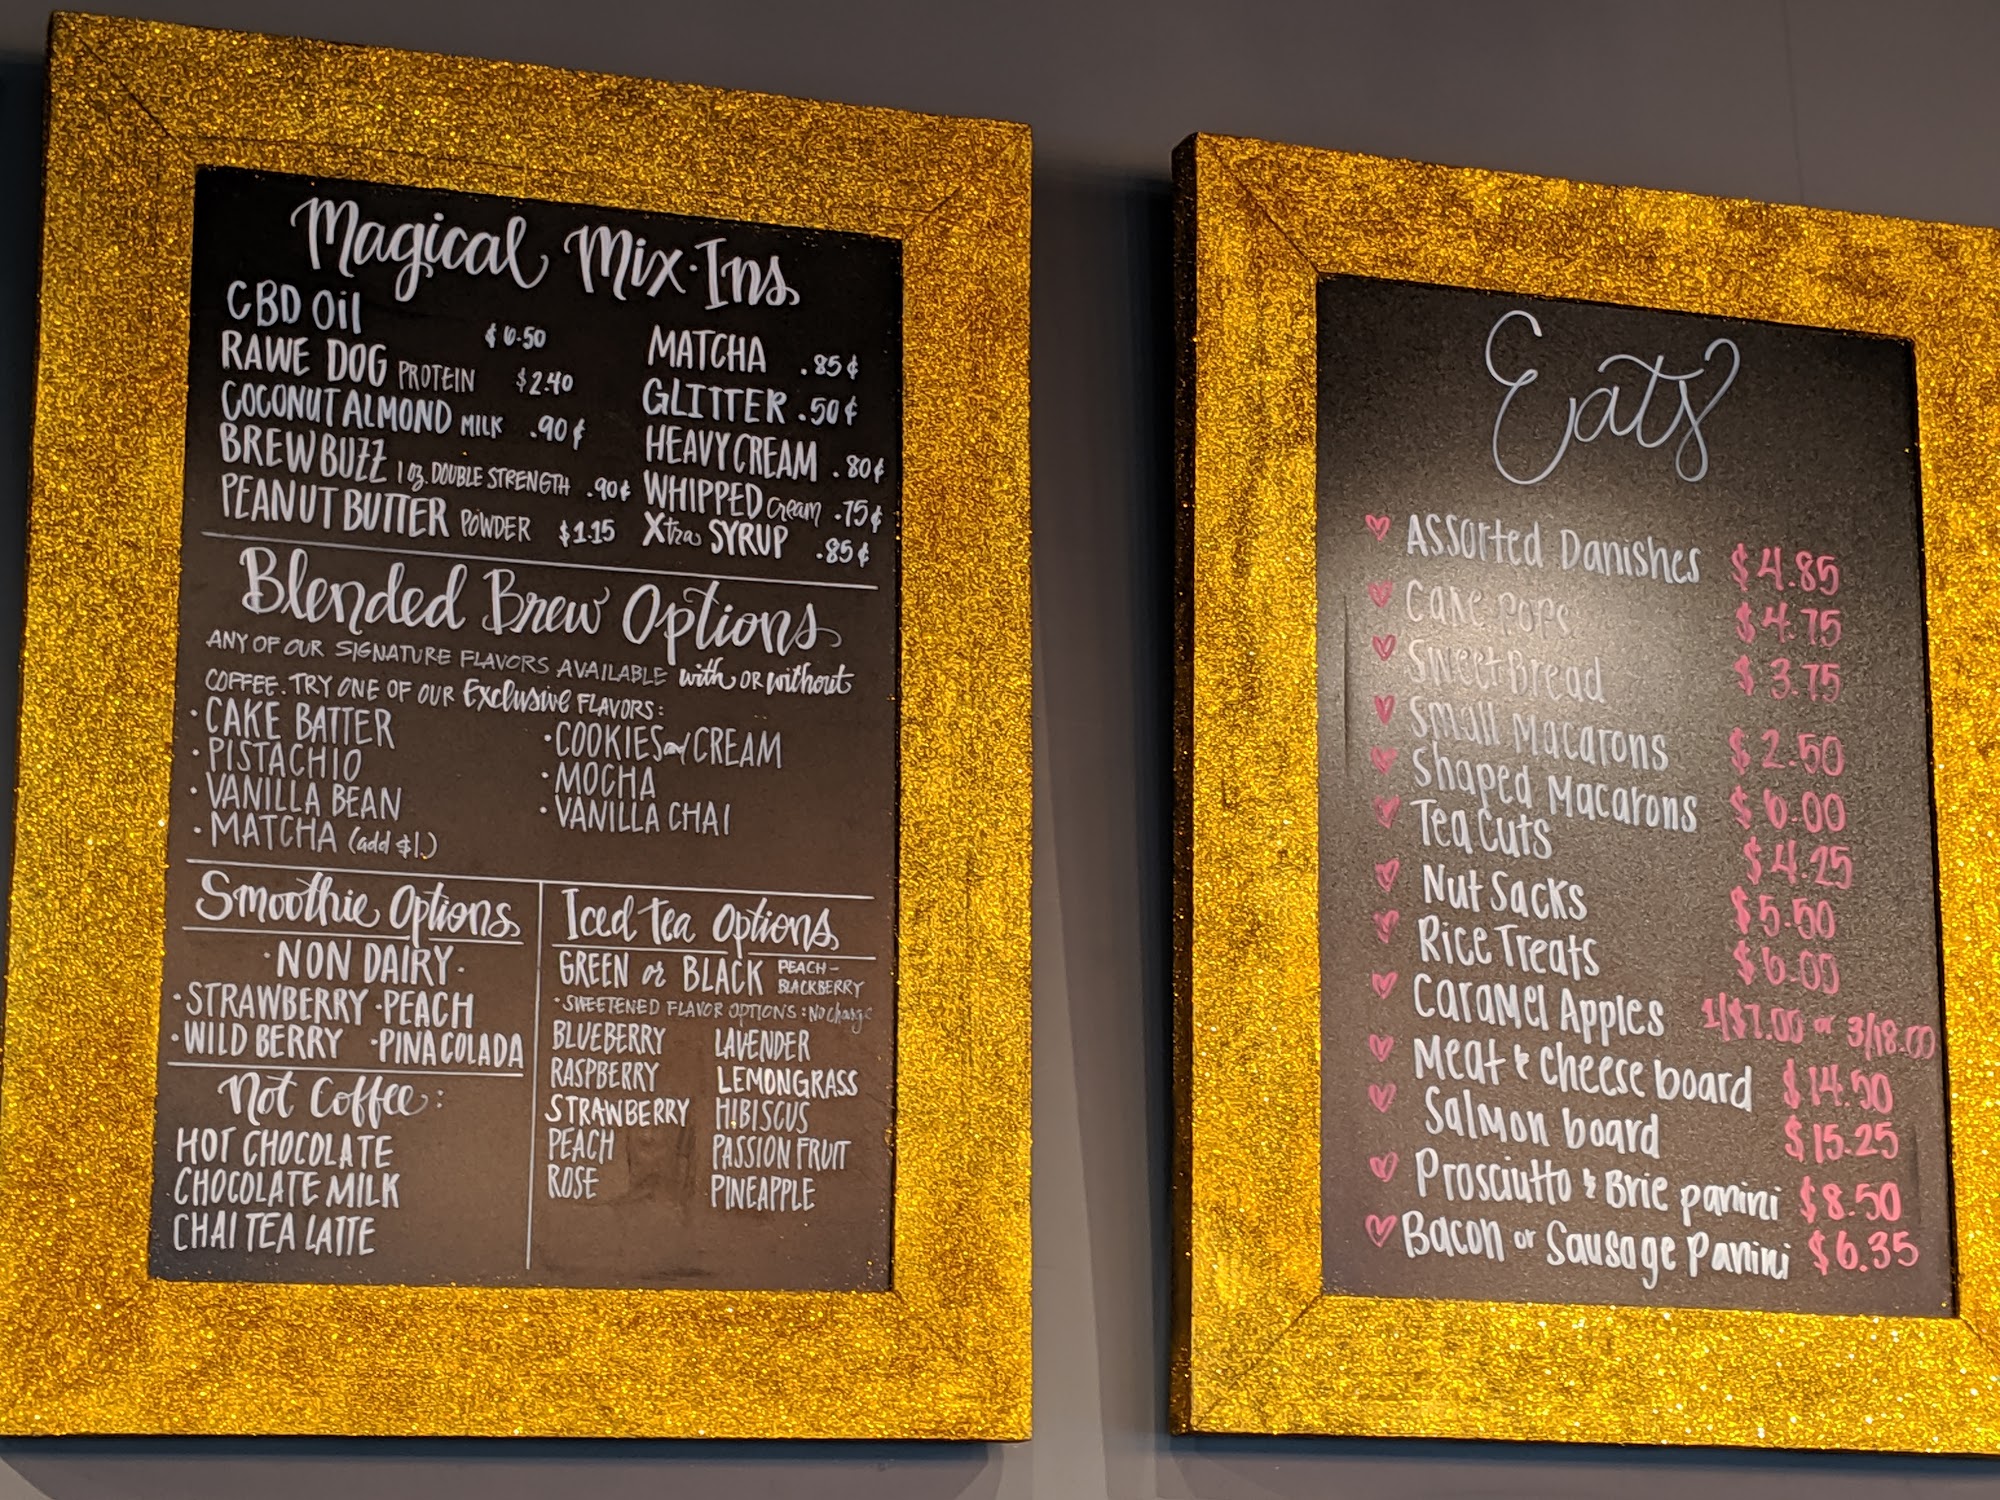 Magical Mix·Ins
CBD Oil $6.50
RAWE DOG PROTEIN $2.40
COCONUT ALMOND MILK .90¢
BREW BUZZ 1 oz. DOUBLE STRENGTH .90¢
PEANUT BUTTER POWDER $1.15
MATCHA .85¢
GLITTER .50¢
HEAVY CREAM .80¢
WHIPPED Cream .75¢
Xtra SYRUP .85¢
Blended Brew Options
ANY OF OUR SIGNATURE FLAVORS AVAILABLE with OR without
COFFEE. TRY ONE OF OUR Exclusive FLAVORS:
· CAKE BATTER
· PISTACHIO
· VANILLA BEAN
· MATCHA (add $1.)
· COOKIES and CREAM
· MOCHA
· VANILLA CHAI
Smoothie Options
· NON DAIRY ·
· STRAWBERRY · PEACH
· WILD BERRY · PINA COLADA
Not Coffee:
HOT CHOCOLATE
CHOCOLATE MILK
CHAI TEA LATTE
Iced Tea Options
GREEN or BLACK PEACH -
BLACKBERRY
· SWEETENED FLAVOR OPTIONS: No Charge
BLUEBERRY LAVENDER
RASPBERRY LEMONGRASS
STRAWBERRY HIBISCUS
PEACH PASSION FRUIT
ROSE PINEAPPLE
Eats
♡ Assorted Danishes $4.85
♡ Cake Pops $4.75
♡ Sweet Bread $3.75
♡ Small Macarons $2.50
♡ Shaped Macarons $6.00
♡ Tea Cuts $4.25
♡ Nut Sacks $5.50
♡ Rice Treats $6.00
♡ Caramel Apples 1/$7.00 or 3/18.00
♡ Meat & Cheese board $14.50
♡ Salmon board $15.25
♡ Prosciutto & Brie panini $8.50
♡ Bacon or Sausage Panini $6.35